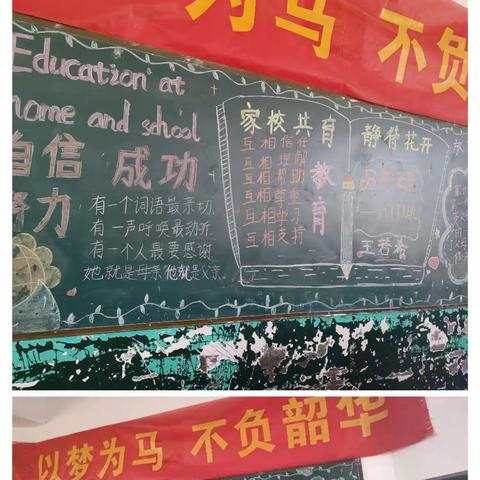 为马 不负
Education at
home and school
自信 成功
努力
有一个词语最亲切
有一声呼唤最动听
有一个人最要感谢
她就是母亲他就是父亲
家校共育
互相信任
互相理解
互相帮助
互相尊重
互相学习
互相支持
教育
静待花开
以梦为马 不负韶华